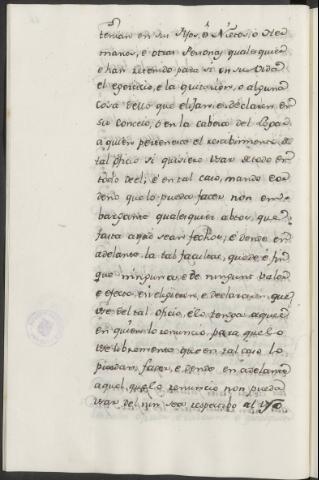 tenian en sus Fijos, o Nietos, o Her
manos, e otras Personas qualesquier
e han retenido para si en su Vida
el egercicio, e la quitacion, o alguna
cosa dello que elijan, e declaren en
su concejo, o en la cabeza del Lugar
a quien pertenece el recebimiento de
tal oficio si quisiere usar de todo en
todo de el; e en tal caso, mando e or
deno que lo pueda facer non em
bargante qualesquier abtos, que
fasta aqui sean fechos; e dende en
adelante la tal facultad, quede e fin
que ninguna, e de ningunt valor
e efecto, e si eligieren, e declararen, que
use del tal oficio, e lo tenga aquel
en quien lo renuncio, para que lo
use libremente que en tal caso lo
puedan facer, e dende en adelante
aquel que lo renuncio non pueda
usar del nin sea rescebido al uso